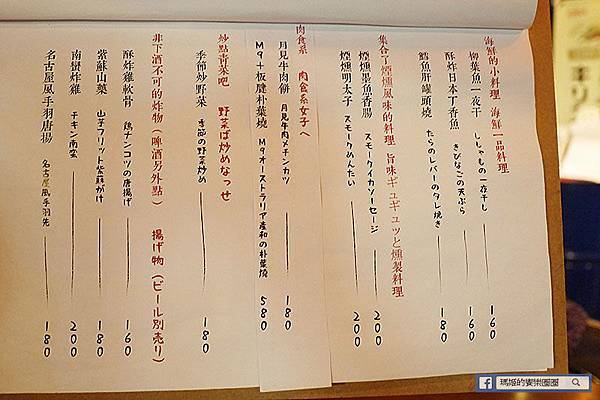 海鮮的小料理 海鮮一品料理
柳葉魚一夜干 ししゃもの一夜干し 160
酥炸日本丁香魚 きびなごの天ぷら 160
鱈魚肝罐頭燒 たらのレバーのタレ焼き 180
集合了煙燻風味的料理 旨味ギュギュッと燻製料理
煙燻墨魚香腸 スモークイカソーセージ 200
煙燻明太子 スモークめんたい 200
肉食系 肉食系女子へ
月見牛肉餅 月見牛肉メチンカツ 180
M9+板腱朴葉燒 M9オーストラリア産和の朴葉燒 580
炒點青菜吧 野菜ば炒めなっせ
季節炒野菜 季節の野菜炒め 180
非下酒不可的炸物(啤酒另外點) 揚げ物(ビール別売り)
酥炸雞軟骨 鶏ナンコツの唐揚げ 160
紫蘇山藥 山芋フリット紫蘇がけ 180
南蠻炸雞 チキン南蛮 200
名古屋風手羽唐揚 名古屋風手羽先 180
瑪姬的饗樂圈圈